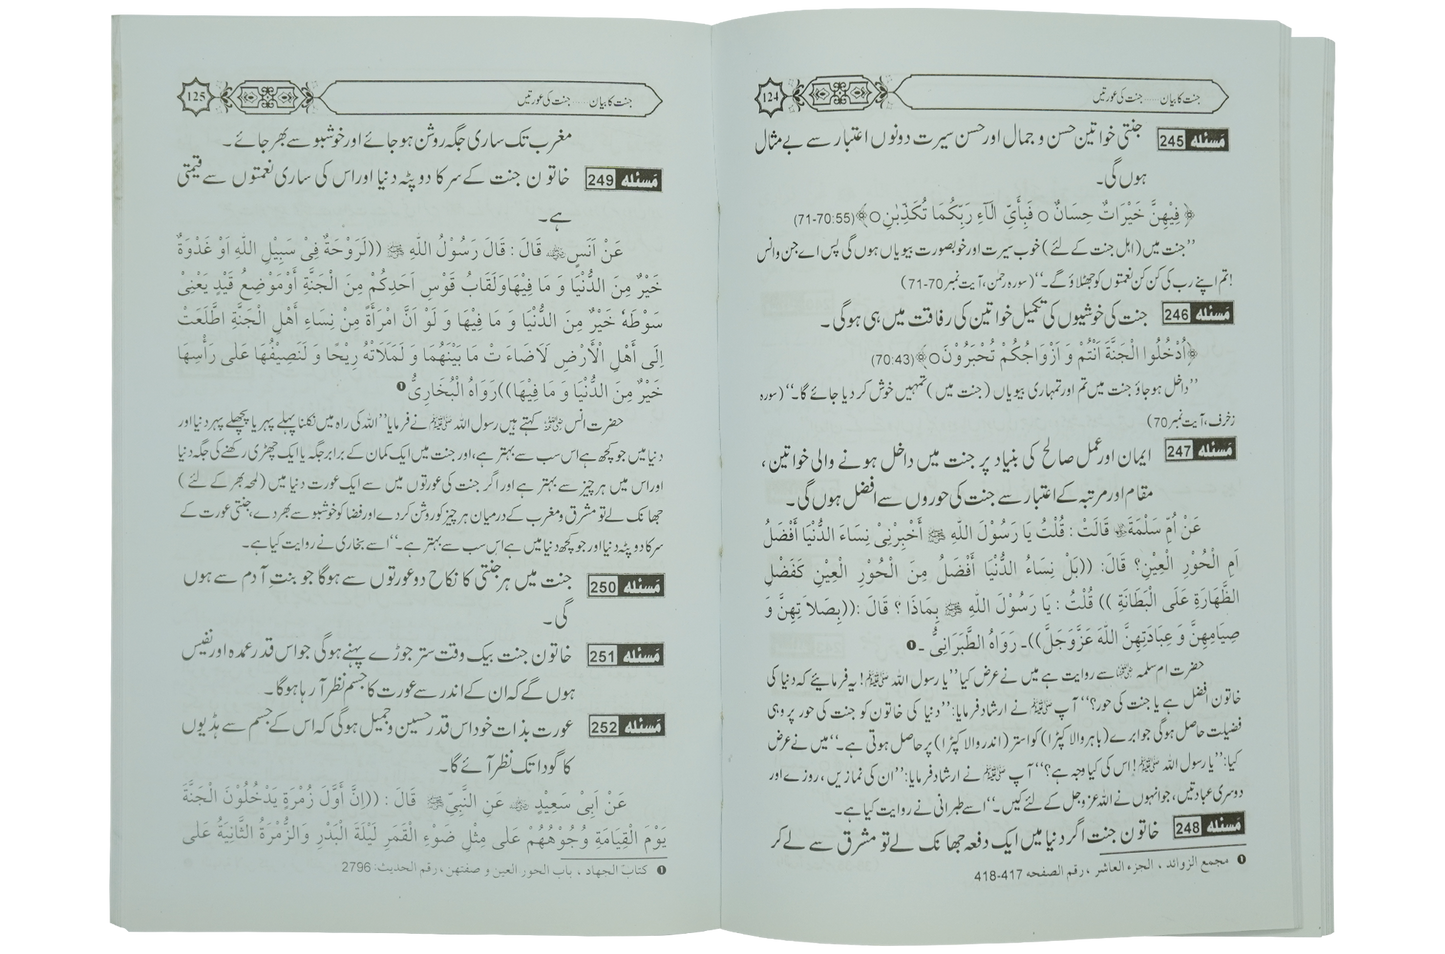 124
جنت کا بیان ..... جنت کی عورتیں
مسئلہ 245 جنتی خواتین حسن و جمال اور حسن سیرت دونوں اعتبار سے بے مثال
ہوں گی۔
﴿ فِيْهِنَّ خَيْرَاتٌ حِسَانٌ ○ فَبِأَيِّ اٰلَآءِ رَبِّكُمَا تُكَذِّبٰنِ○﴾(55:70-71)
’’جنت میں (اہل جنت کے لئے) خوب سیرت اور خوبصورت بیویاں ہوں گی پس اے جن وانس
!تم اپنے رب کی کن کن نعمتوں کو جھٹلاؤ گے۔‘‘ (سورہ رحمٰن، آیت نمبر 70-71)
مسئلہ 246 جنت کی خوشیوں کی تکمیل خواتین کی رفاقت میں ہی ہوگی ۔
﴿اُدْخُلُوا الْجَنَّةَ اَنْتُمْ وَ اَزْوَاجُكُمْ تُحْبَرُوْنَ○﴾(70:43)
’’داخل ہو جاؤ جنت میں تم اور تمہاری بیویاں (جنت میں) تمہیں خوش کر دیا جائے گا۔‘‘ (سورہ
زخرف، آیت نمبر 70)
مسئلہ 247 ایمان اور عمل صالح کی بنیاد پر جنت میں داخل ہونے والی خواتین ،
مقام اور مرتبہ کے اعتبار سے جنت کی حوروں سے افضل ہوں گی۔
عَنْ اُمِّ سَلْمَةَ ؓ قَالَتْ : قُلْتُ يَا رَسُوْلَ اللّٰهِ ﷺ أَخْبِرْنِيْ نِسَاءَ الدُّنْيَا أَفْضَلُ
اَمِ الْحُوْرِ الْعِيْنِ؟ قَالَ: ((بَلْ نِسَاءُ الدُّنْيَا أَفْضَلُ مِنَ الْحُوْرِ الْعِيْنِ كَفَضْلِ
الظَّهَارَةِ عَلَى الْبَطَانَةِ )) قُلْتُ : يَا رَسُوْلَ اللّٰهِ ﷺ بِمَاذَا ؟ قَالَ :((بِصَلاَ تِهِنَّ وَ
صِيَامِهِنَّ وَ عِبَادَتِهِنَّ اللّٰهَ عَزَّوَجَلَّ))۔ رَوَاهُ الطَّبَرَانِىُّ ۔❶
حضرت ام سلمہ ؓ سے روایت ہے میں نے عرض کیا ’’یا رسول اللہ ﷺ! یہ فرمایئے کہ دنیا کی
خاتون افضل ہے یا جنت کی حور؟‘‘ آپ ﷺ نے ارشاد فرمایا: ’’دنیا کی خاتون کو جنت کی حور پر وہی
فضیلت حاصل ہوگی جو ابرے (باہر والا کپڑا) کو استر (اندر والا کپڑا) پر حاصل ہوتی ہے۔‘‘ میں نے عرض
کیا: ’’یا رسول اللہ ﷺ! اس کی کیا وجہ ہے؟‘‘ آپ ﷺ نے ارشاد فرمایا: ’’ان کی نمازیں ، روزے اور
دوسری عبادتیں، جو انہوں نے اللہ عزوجل کے لئے کیں۔‘‘ اسے طبرانی نے روایت کیا ہے۔
مسئلہ 248 خاتون جنت اگر دنیا میں ایک دفعہ جھانک لے تو مشرق سے لے کر
❶ مجمع الزوائد ، الجزء العاشر ، رقم الصفحه 417-418
125
جنت کا بیان ..... جنت کی عورتیں
مغرب تک ساری جگہ روشن ہو جائے اور خوشبو سے بھر جائے ۔
مسئلہ 249 خاتون جنت کے سر کا دوپٹہ دنیا اور اس کی ساری نعمتوں سے قیمتی
ہے ۔
عَنْ اَنَسٍ ؓ قَالَ : قَالَ رَسُوْلُ اللّٰهِ ﷺ ((لَرَوْحَةٌ فِىْ سَبِيْلِ اللّٰهِ اَوْ غَدْوَةٌ
خَيْرٌ مِنَ الدُّنْيَا وَ مَا فِيْهَا وَلَقَابُ قَوْسِ اَحَدِكُمْ مِنَ الْجَنَّةِ أَوْمَوْضِعُ قَيْدٍ يَعْنِىْ
سَوْطَهُ خَيْرٌ مِنَ الدُّنْيَا وَ مَا فِيْهَا وَ لَوْ اَنَّ امْرَأَةً مِنْ نِسَاءِ أَهْلِ الْجَنَّةِ اطَّلَعَتْ
اِلَى أَهْلِ الْأَرْضِ لَاَضَاءَ تْ مَا بَيْنَهُمَا وَ لَمَلَاَتْهُ رِيْحًا وَ لَنَصِيْفُهَا عَلٰى رَأْسِهَا
خَيْرٌ مِنَ الدُّنْيَا وَ مَا فِيْهَا)) رَوَاهُ الْبُخَارِىُّ❶
حضرت انس ؓ کہتے ہیں رسول اللہ ﷺ نے فرمایا ’’اللہ کی راہ میں نکلنا پہلے پہر یا پچھلے پہر دنیا اور
دنیا میں جو کچھ ہے اس سب سے بہتر ہے، اور جنت میں ایک کمان کے برابر جگہ یا ایک چھڑی رکھنے کی جگہ دنیا
اور اس میں ہر چیز سے بہتر ہے اور اگر جنت کی عورتوں میں سے ایک عورت دنیا میں (لمحہ بھر کے لئے )
جھانک لے تو مشرق و مغرب کے درمیان ہر چیز کو روشن کر دے اور فضا کو خوشبو سے بھر دے، جنتی عورت کے
سر کا دوپٹہ دنیا اور جو کچھ دنیا میں ہے اس سب سے بہتر ہے۔‘‘ اسے بخاری نے روایت کیا ہے۔
مسئلہ 250 جنت میں ہر جنتی کا نکاح دو عورتوں سے ہوگا جو بنتِ آدم سے ہوں
گی ۔
مسئلہ 251 خاتون جنت بیک وقت ستر جوڑے پہنے ہوگی جو اس قدر عمدہ اور نفیس
ہوں گے کہ ان کے اندر سے عورت کا جسم نظر آ رہا ہوگا ۔
مسئلہ 252 عورت بذات خود اس قدر حسین و جمیل ہوگی کہ اس کے جسم سے ہڈیوں
کا گودا تک نظر آئے گا۔
عَنْ اَبِىْ سَعِيْدٍ ؓ عَنِ النَّبِىِّ ﷺ قَالَ : ((اِنَّ أَوَّلَ زُمْرَةٍ يَدْخُلُوْنَ الْجَنَّةَ
يَوْمَ الْقِيَامَةِ وُجُوْهُهُمْ عَلٰى مِثْلِ ضَوْءِ الْقَمَرِ لَيْلَةَ الْبَدْرِ وَالزُّمْرَةُ الثَّانِيَةُ عَلٰى
❶ كتاب الجهاد ، باب الحور العين و صفتهن ، رقم الحديث: 2796